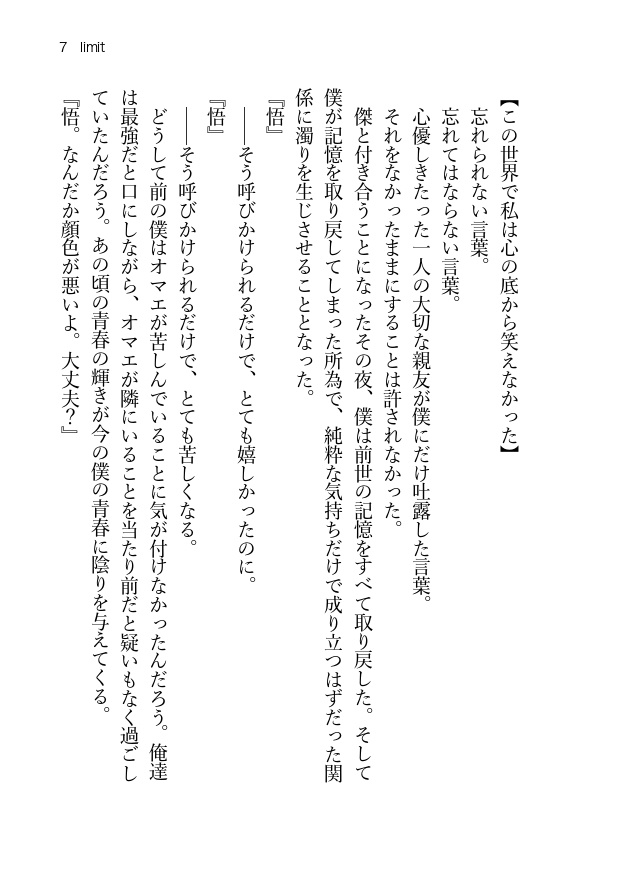 7 limit
【この世界で私は心の底から笑えなかった】
忘れられない言葉。
忘れてはならない言葉。
心優しきたった一人の大切な親友が僕にだけ吐露した言葉。
それをなかったままにすることは許されなかった。
傑と付き合うことになったその夜、僕は前世の記憶をすべて取り戻した。そして
僕が記憶を取り戻してしまった所為で、純粋な気持ちだけで成り立つはずだった関
係に濁りを生じさせることとなった。
『悟』
――そう呼びかけられるだけで、とても嬉しかったのに。
『悟』
――そう呼びかけられるだけで、とても苦しくなる。
どうして前の僕はオマエが苦しんでいることに気が付けなかったんだろう。俺達
は最強だと口にしながら、オマエが隣にいることを当たり前だと疑いもなく過ごし
ていたんだろう。あの頃の青春の輝きが今の僕の青春に陰りを与えてくる。
『悟。なんだか顔色が悪いよ。大丈夫？』